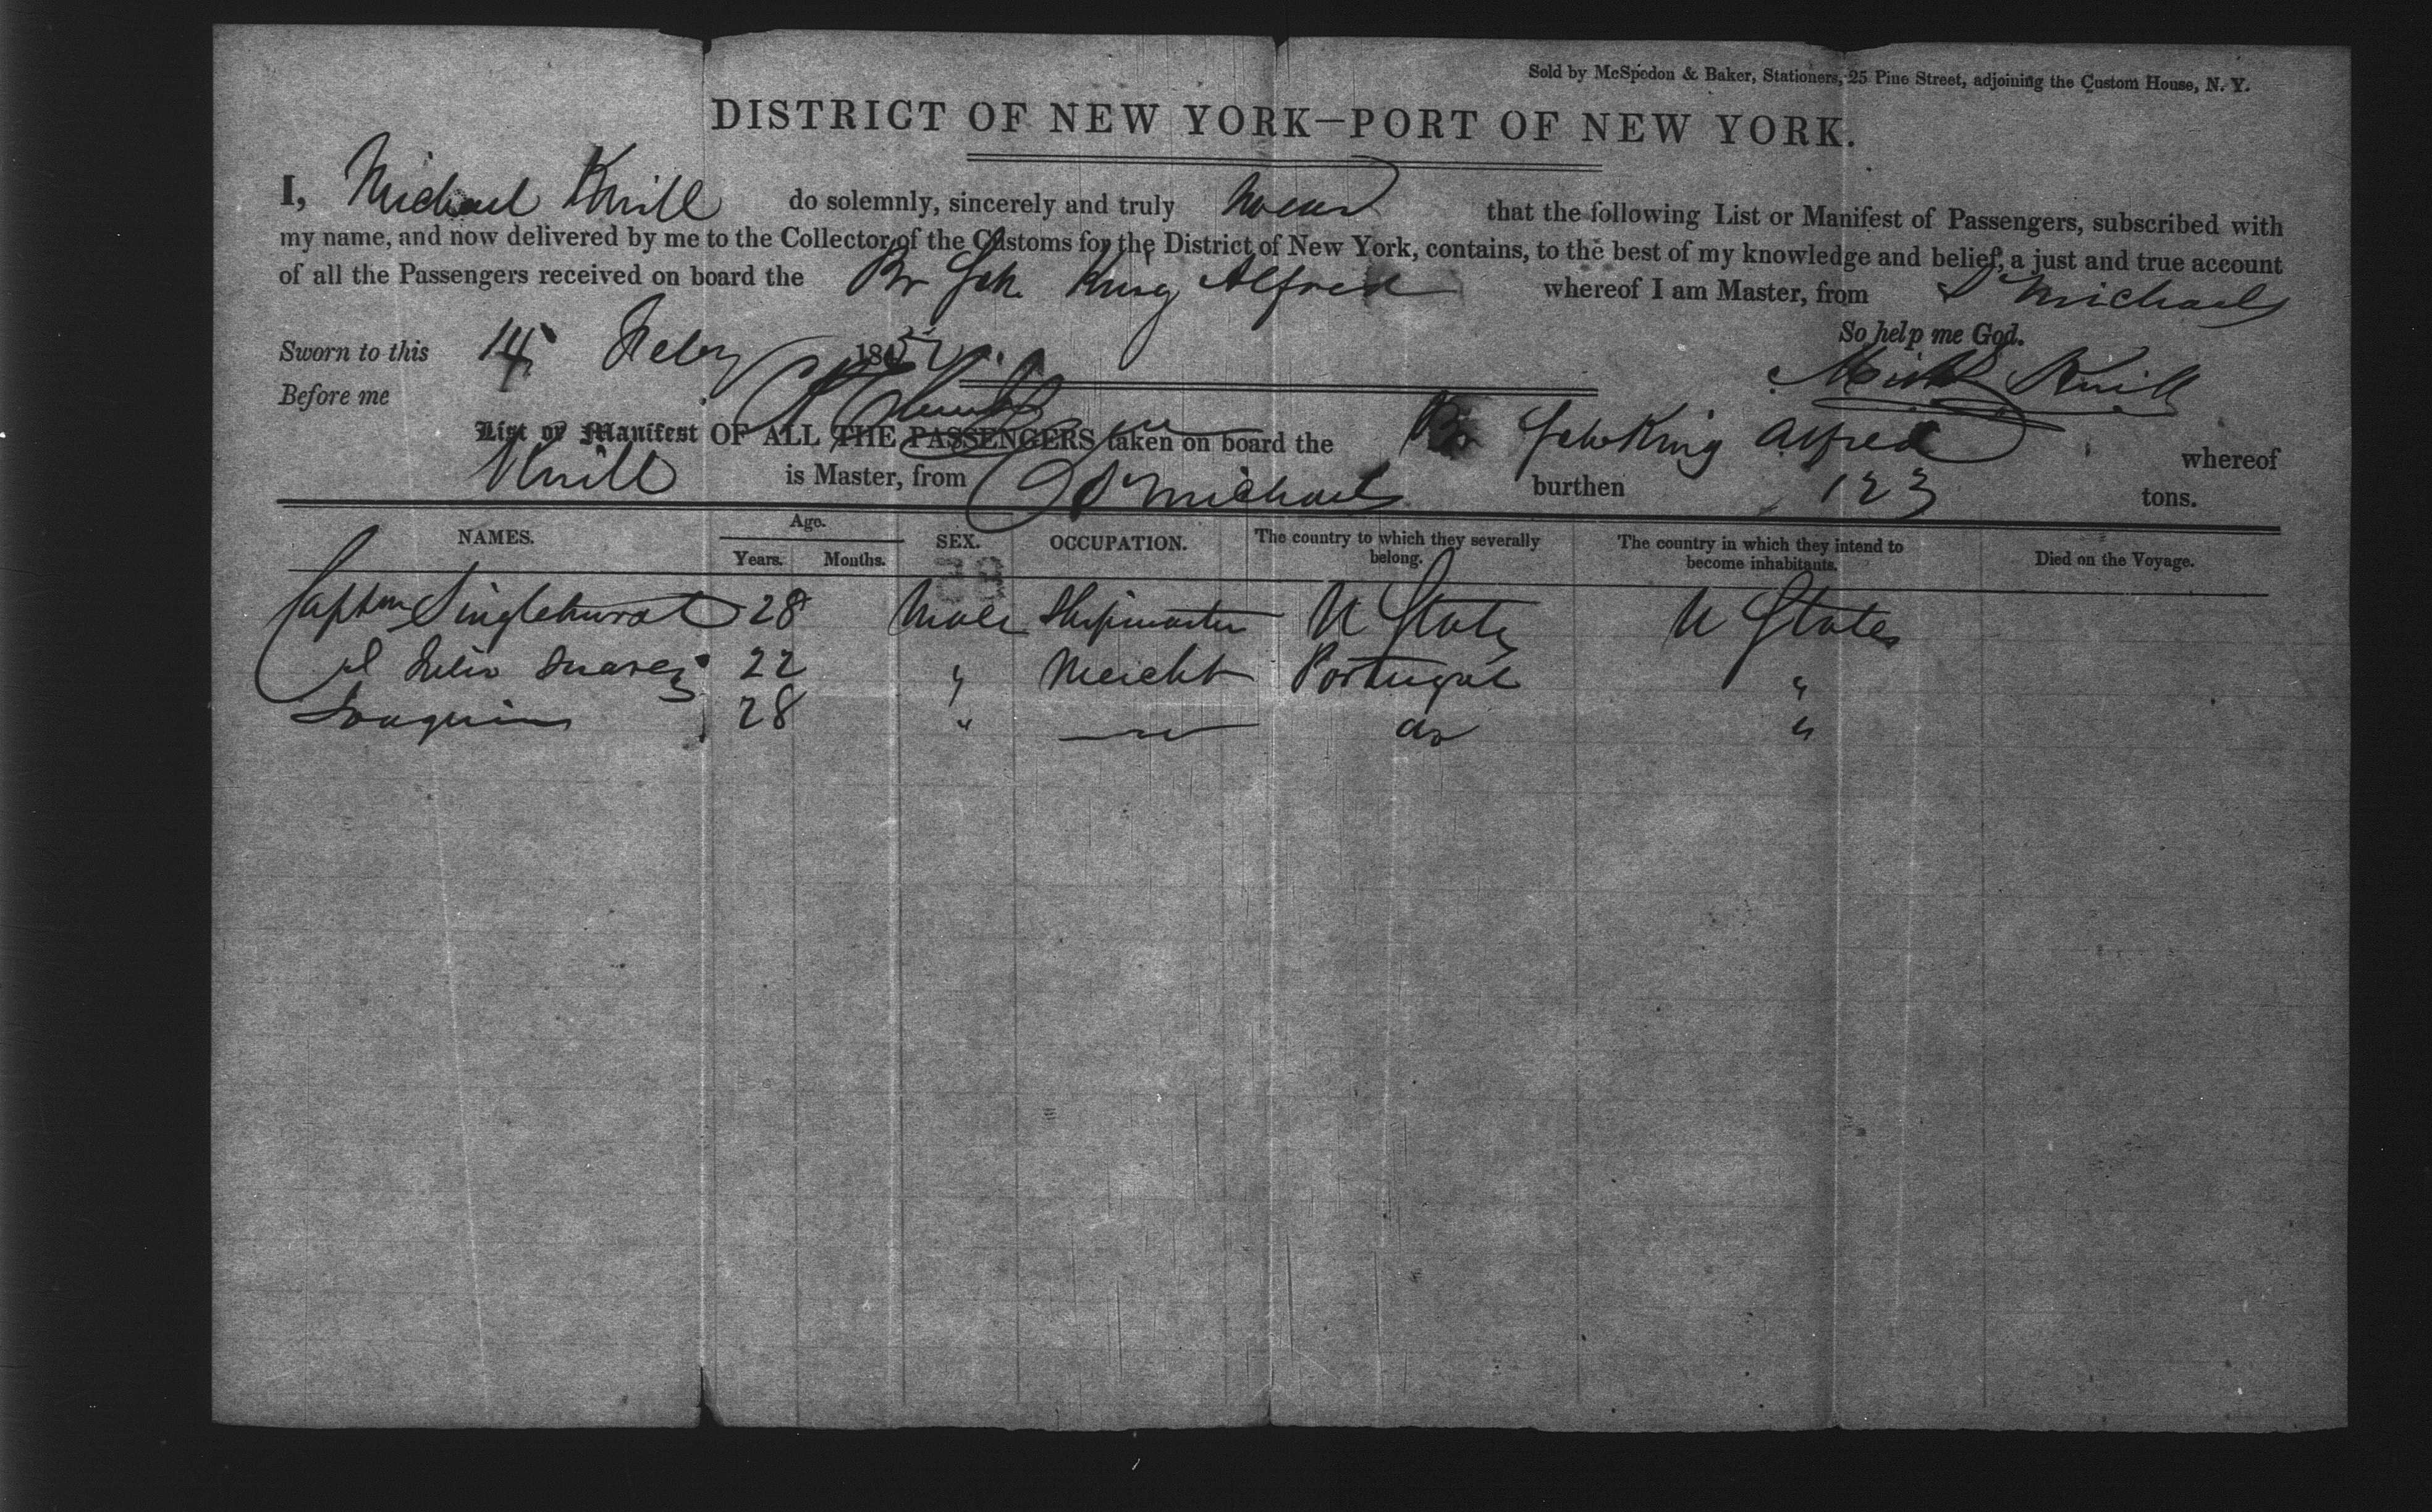 Sold by McSpedon & Baker, Stationers, 25 Pine Street, adjoining the Custom House, N. Y.
DISTRICT OF NEW YORK—PORT OF NEW YORK.
I, Michael Knill do solemnly, sincerely and truly swear that the following List or Manifest of Passengers, subscribed with
my name, and now delivered by me to the Collector of the Customs for the District of New York, contains, to the best of my knowledge and belief, a just and true account
of all the Passengers received on board the Br Sch King Alfred whereof I am Master, from St Michaels
So help me God.
Sworn to this 14 Feby 185
Before me
Mich Knill
List or Manifest OF ALL THE PASSENGERS taken on board the Br Sch King Alfred whereof
Knill is Master, from St Michaels burthen 123 tons.
NAMES. Age. Years. Months. SEX. OCCUPATION. The country to which they severally belong. The country in which they intend to become inhabitants. Died on the Voyage.
Captn Singlehurst 28 Male Shipmaster U States U States
Suarez 22 " Mercht Portugal "
Joaquim 28 " — do "